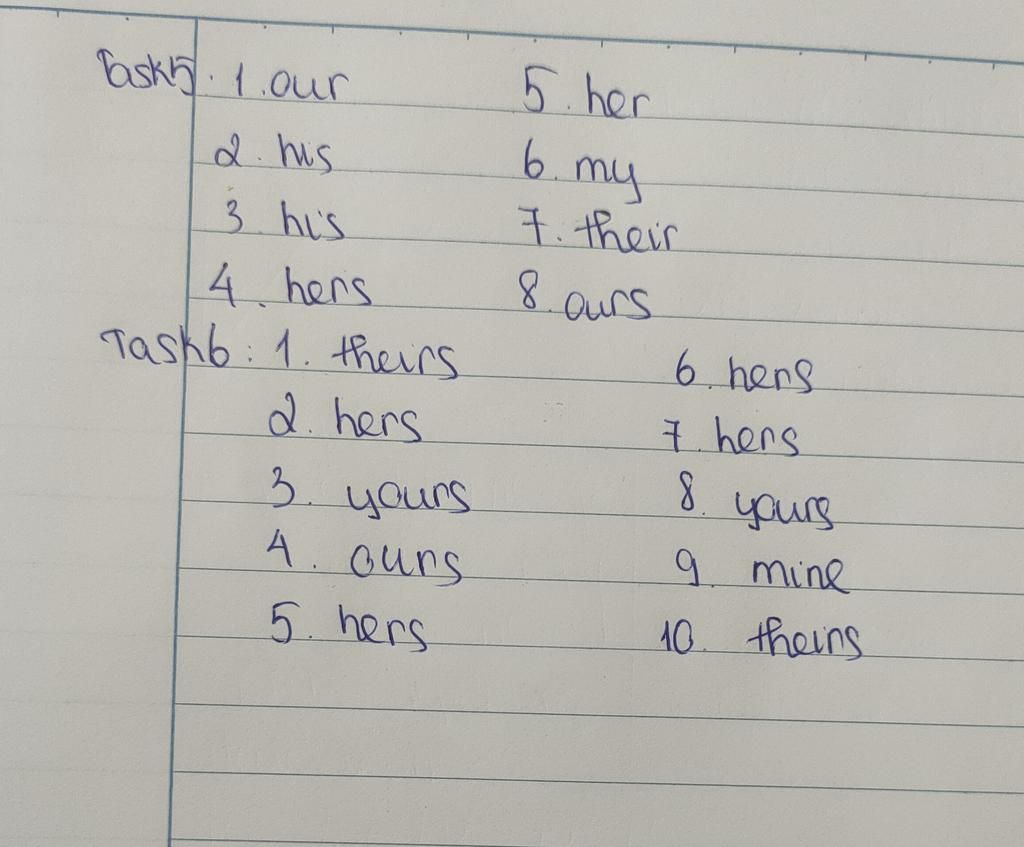 Task 5. 1. our 5. her
2. his 6. my
3 his 7. their
4. hers 8. ours
Task 6: 1. theirs 6. hers
2. hers 7. hers
3. yours 8. yours
4. ours 9. mine
5. hers 10. theirs